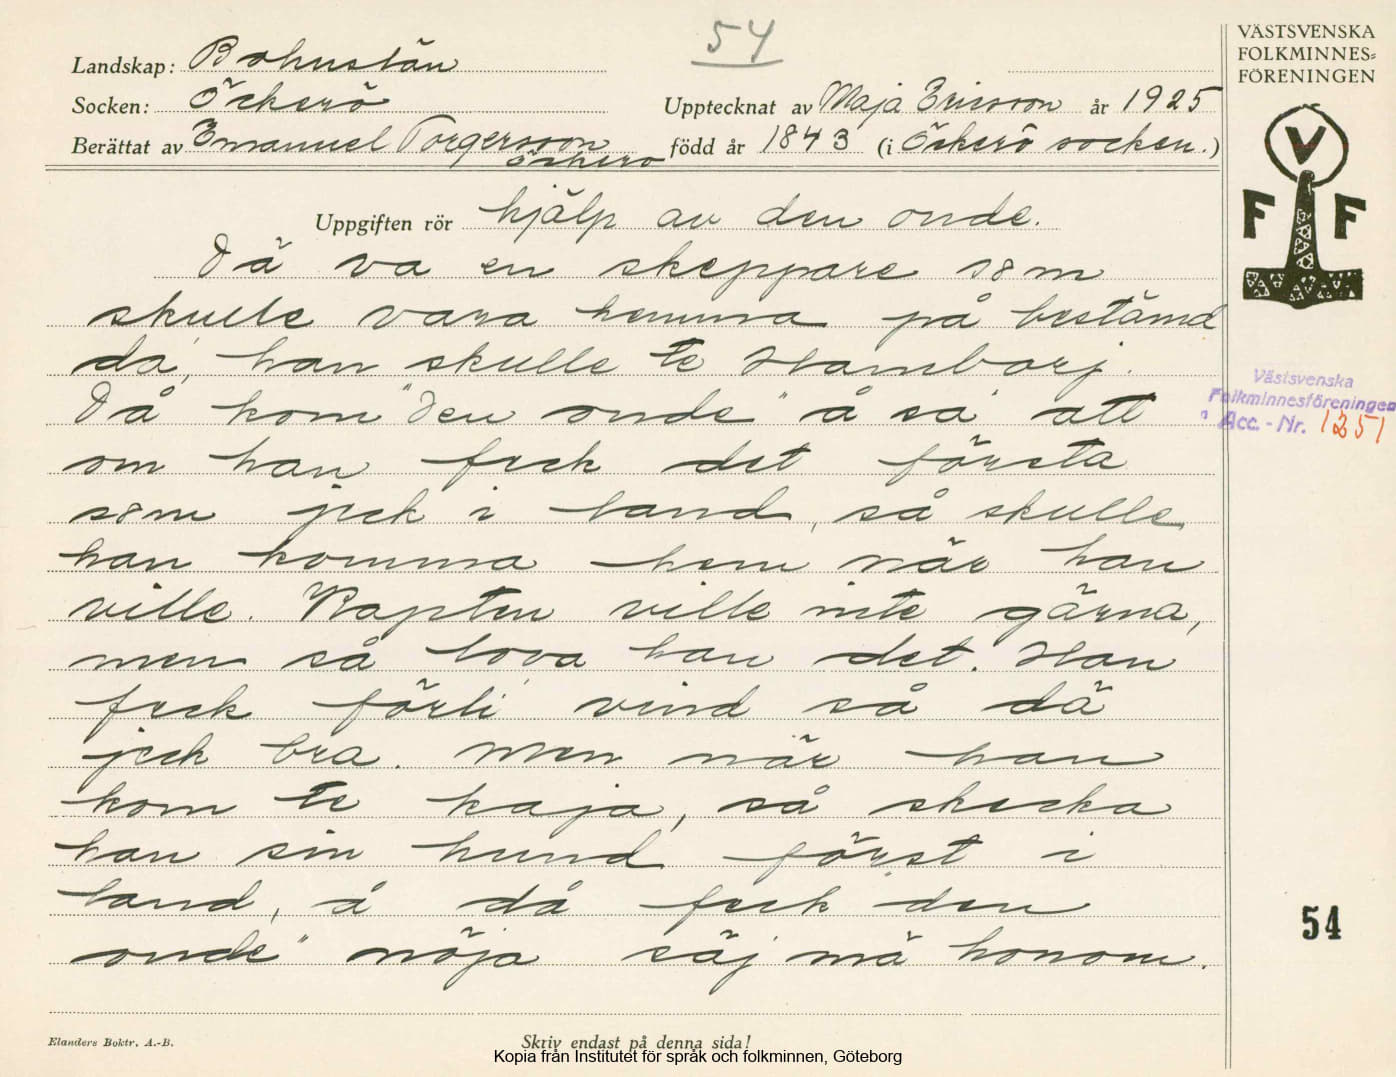 54
VÄSTSVENSKA
FOLKMINNES=
FÖRENINGEN
Landskap: Bohuslän
Socken: Öckerö
Upptecknat av Maja Ericsson år 1925
Berättat av Emanuel Torgersson
Öckerö
född år 1843 (i Öckerö socken.)
V
F F
Uppgiften rör hjälp av den onde.
Dä va en skeppare som
skulle vara hemma på bestämd
da, han skulle te Hamborj.
Då kom "den onde" å sa att
om han feck det första
som jeck i land, så skulle
han komma hem när han
ville. Kapten ville inte gärna,
men så lova han det. Han
feck förli vind så dä
jeck bra. Men när han
kom te kaja, så skecka
han sin hund först i
land, å då feck "den
onde" nöja säj mä honom.
Västsvenska
Folkminnesföreningen
Acc.-Nr. 1251
54
Elanders Boktr. A.-B.
Skriv endast på denna sida!
Kopia från Institutet för språk och folkminnen, Göteborg